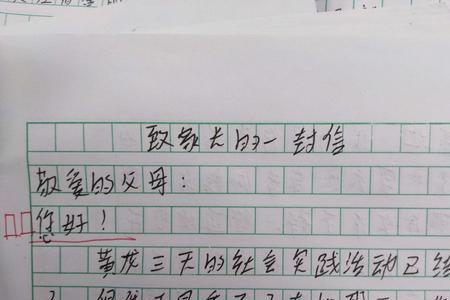 致家长的一封信
敬爱的父母：
您好！
黄龙三天的社会实践活动已经